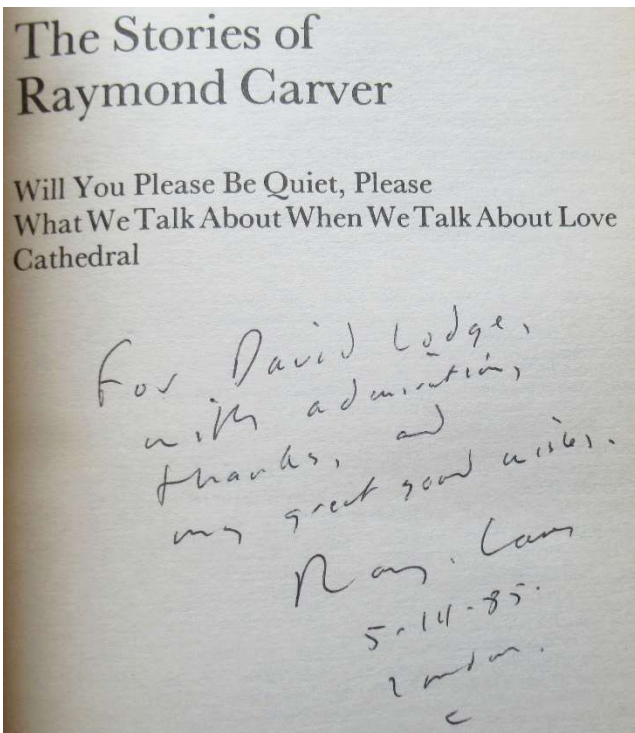 The Stories of
Raymond Carver
Will You Please Be Quiet, Please
What We Talk About When We Talk About Love
Cathedral
For David Lodge,
with admiration,
thanks, and
my great good wishes.
Ray. Carver
5-14-85.
London.